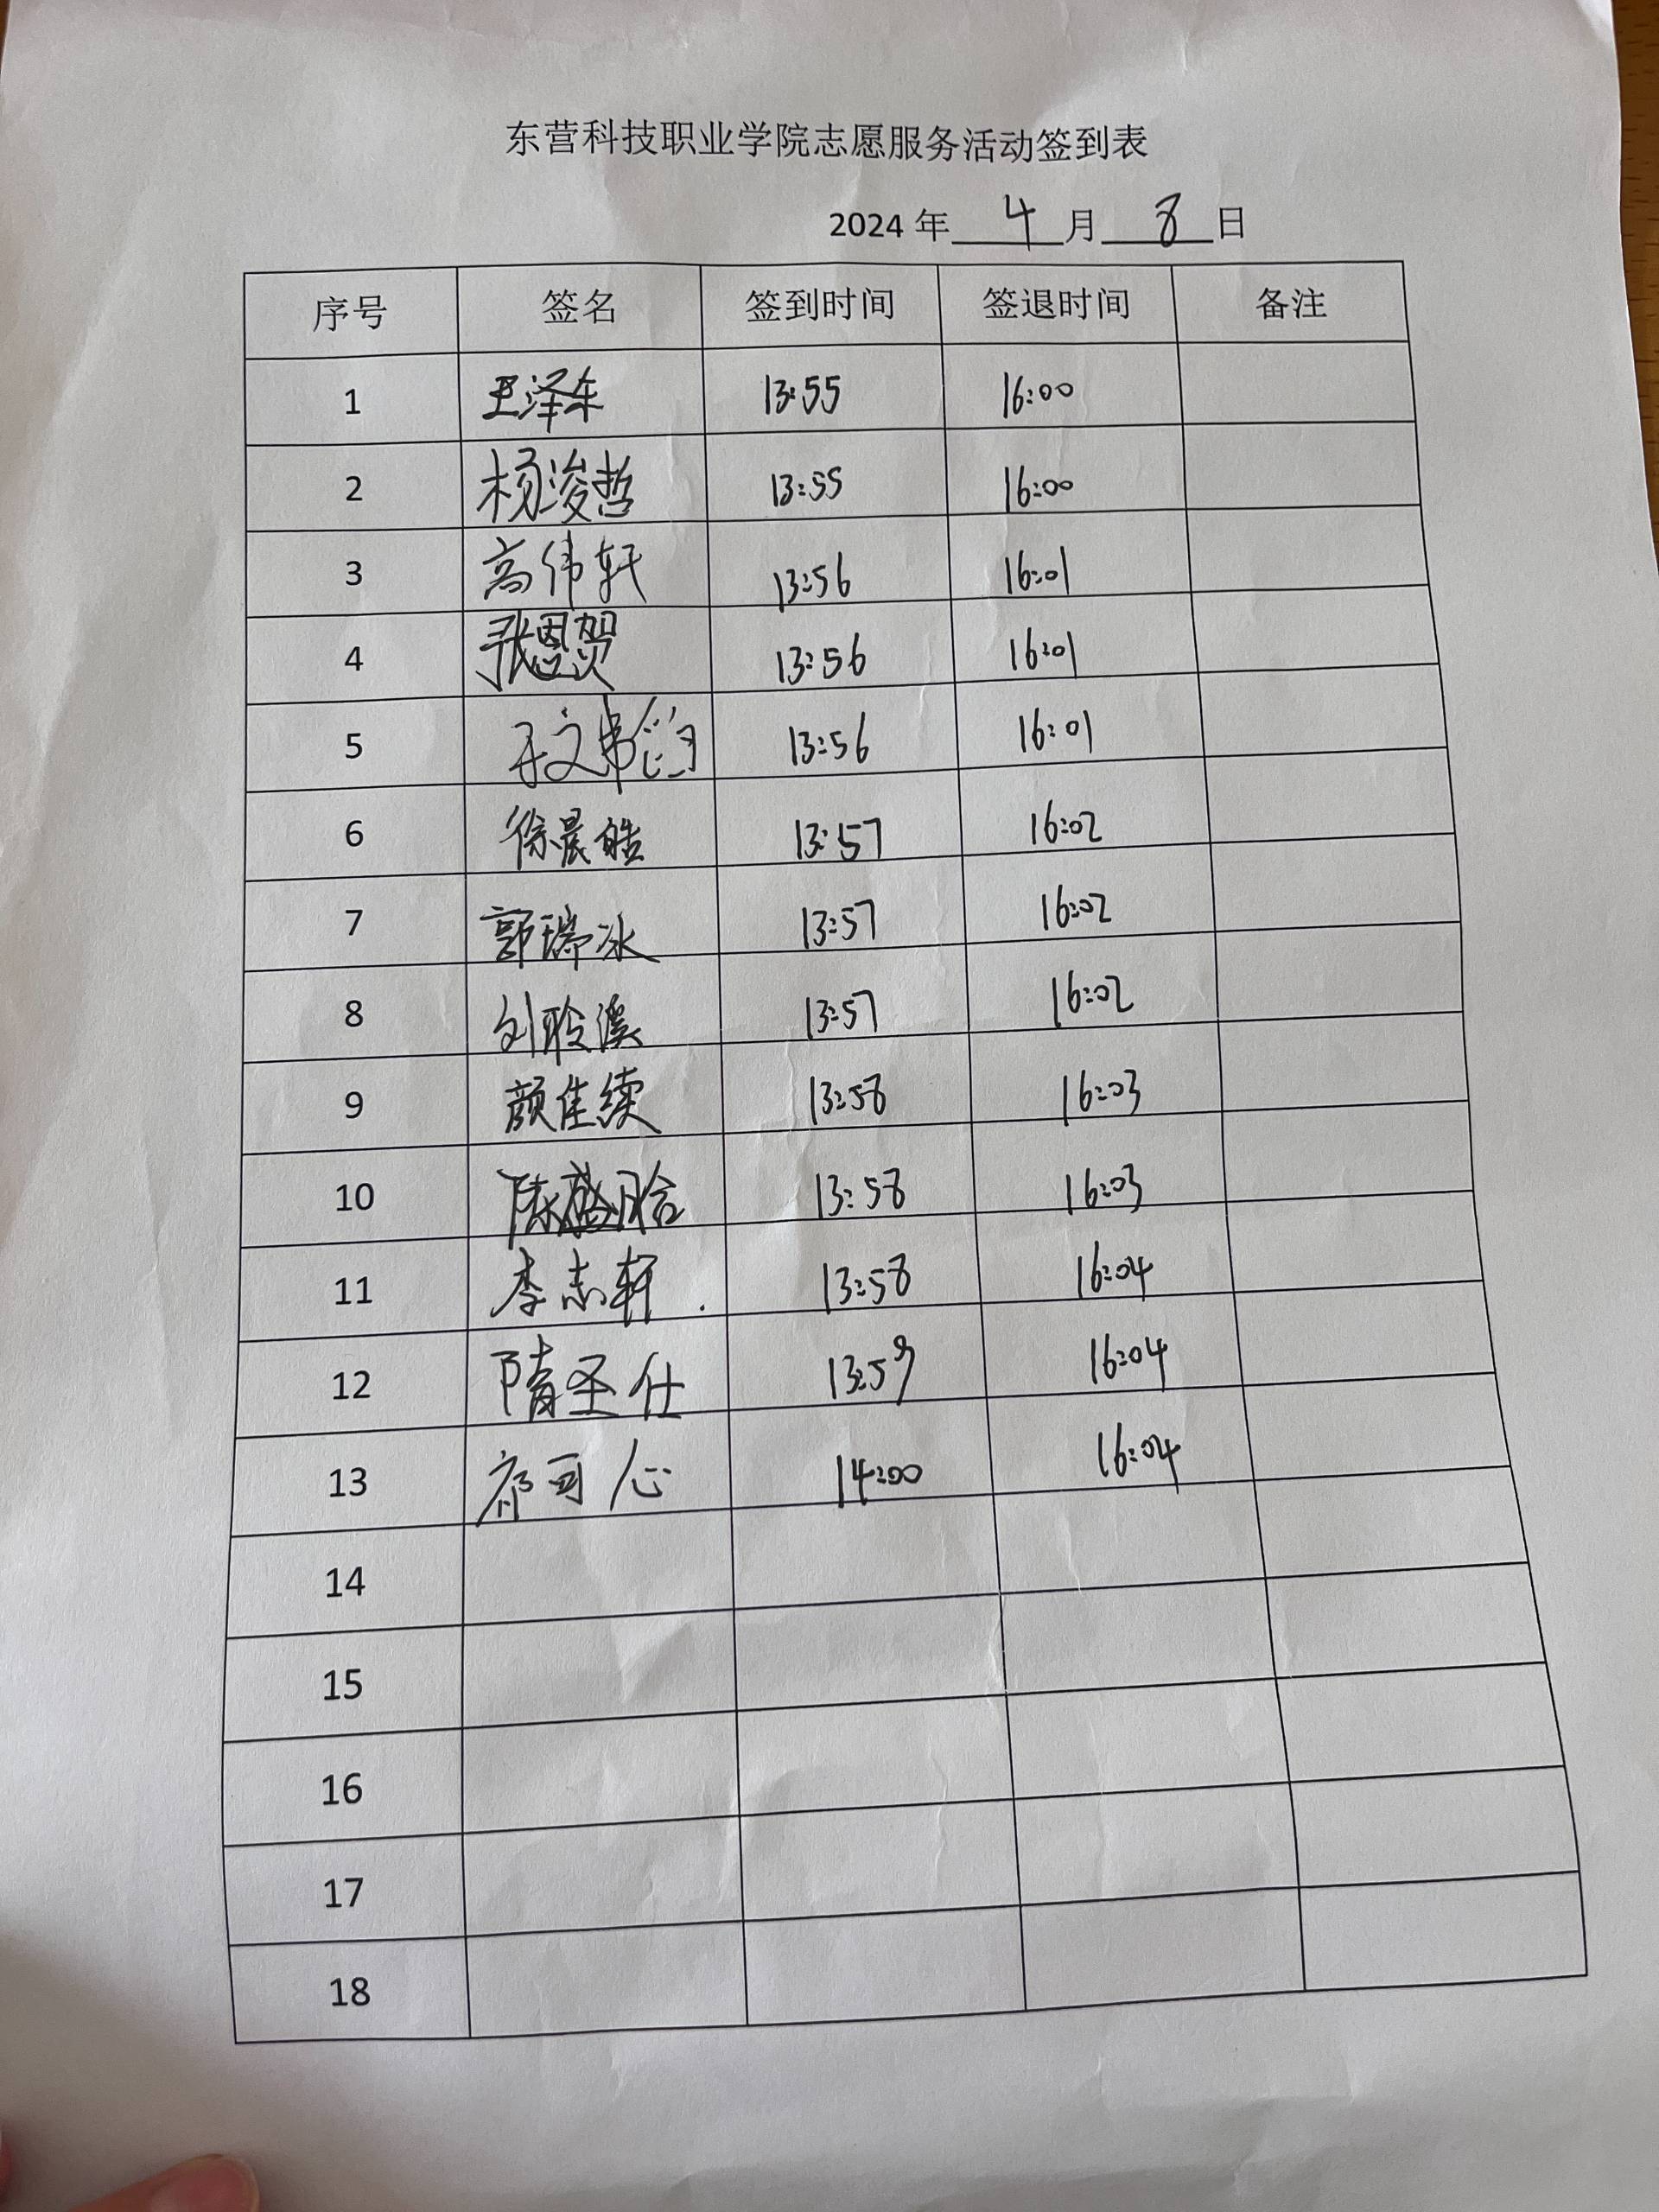 东营科技职业学院志愿服务活动签到表
2024 年 4 月 8 日
序号 签名 签到时间 签退时间 备注
1 王泽东 13:55 16:00
2 杨浚哲 13:55 16:00
3 高伟轩 13:56 16:01
4 张恩贺 13:56 16:01
5 13:56 16:01
6 徐晨皓 13:57 16:02
7 郭瑞冰 13:57 16:02
8 刘聆溪 13:57 16:02
9 颜佳续 13:58 16:03
10 陈盛晗 13:58 16:03
11 李志轩 . 13:58 16:04
12 隋圣仕 13:59 16:04
13 可心 14:00 16:04
14
15
16
17
18